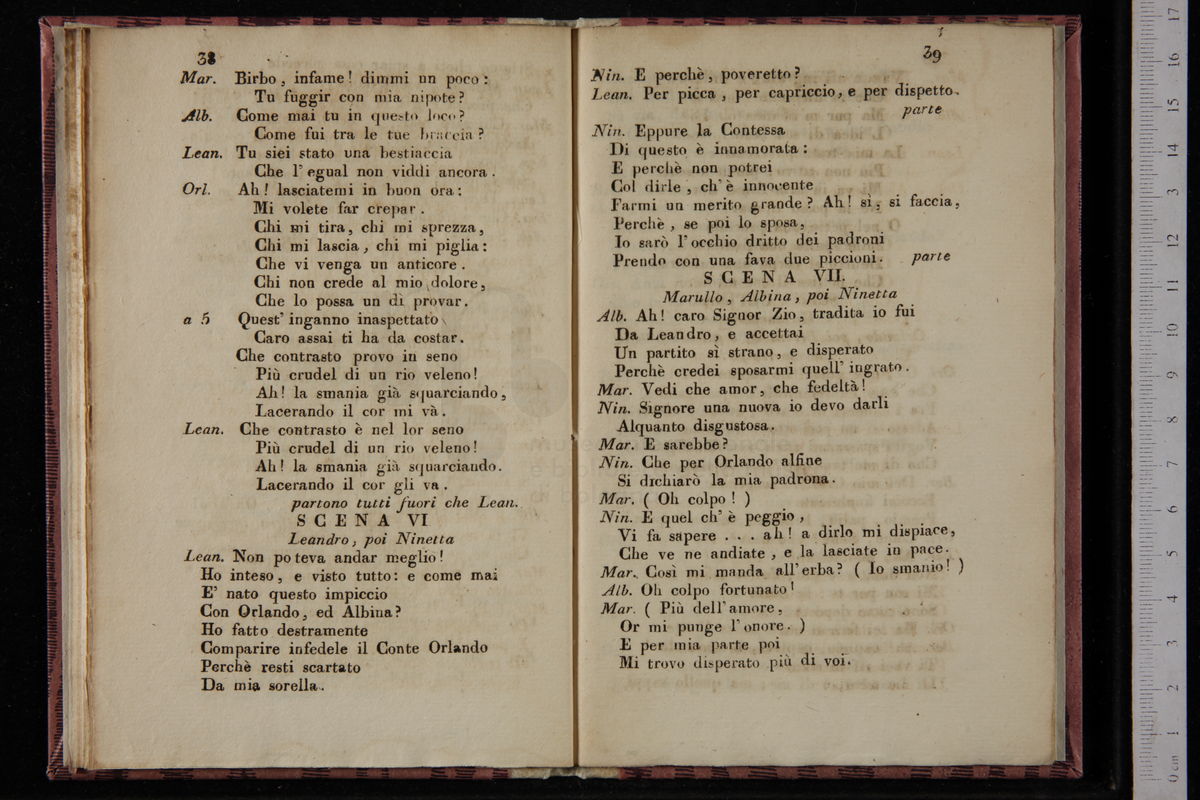 38
Mar. Birbo, infame! dimmi un poco:
Tu fuggir con mia nipote?
Alb. Come mai tu in questo loco?
Come fui tra le tue braccia?
Lean. Tu siei stato una bestiaccia
Che l'egual non viddi ancora.
Orl. Ah! lasciatemi in buon ora:
Mi volete far crepar.
Chi mi tira, chi mi sprezza,
Chi mi lascia, chi mi piglia:
Che vi venga un anticore.
Chi non crede al mio dolore,
Che lo possa un dì provar.
a 5 Quest' inganno inaspettato
Caro assai ti ha da costar.
Che contrasto provo in seno
Più crudel di un rio veleno!
Ah! la smania già squarciando,
Lacerando il cor mi và.
Lean. Che contrasto è nel lor seno
Più crudel di un rio veleno!
Ah! la smania già squarciando.
Lacerando il cor gli va.
partono tutti fuori che Lean.
SCENA VI
Leandro, poi Ninetta
Lean. Non poteva andar meglio!
Ho inteso, e visto tutto: e come mai
E' nato questo impiccio
Con Orlando, ed Albina?
Ho fatto destramente
Comparire infedele il Conte Orlando
Perchè resti scartato
Da mia sorella.
39
Nin. E perchè, poveretto?
Lean. Per picca, per capriccio, e per dispetto.
parte
Nin. Eppure la Contessa
Di questo è innamorata:
E perchè non potrei
Col dirle, ch'è innocente
Farmi un merito grande? Ah! sì, si faccia,
Perchè, se poi lo sposa,
Io sarò l'occhio dritto dei padroni
Prendo con una fava due piccioni. parte
SCENA VII.
Marullo, Albina, poi Ninetta
Alb. Ah! caro Signor Zio, tradita io fui
Da Leandro, e accettai
Un partito sì strano, e disperato
Perchè credei sposarmi quell' ingrato.
Mar. Vedi che amor, che fedeltà!
Nin. Signore una nuova io devo darli
Alquanto disgustosa.
Mar. E sarebbe?
Nin. Che per Orlando alfine
Si dichiarò la mia padrona.
Mar. ( Oh colpo! )
Nin. E quel ch' è peggio,
Vi fa sapere . . . ah! a dirlo mi dispiace,
Che ve ne andiate, e la lasciate in pace.
Mar. Così mi manda all'erba? ( Io smanio! )
Alb. Oh colpo fortunato!
Mar. ( Più dell'amore,
Or mi punge l'onore. )
E per mia parte poi
Mi trovo disperato più di voi.
0 cm 1 2 3 4 5 6 7 8 9 10 11 12 13 14 15 16 17